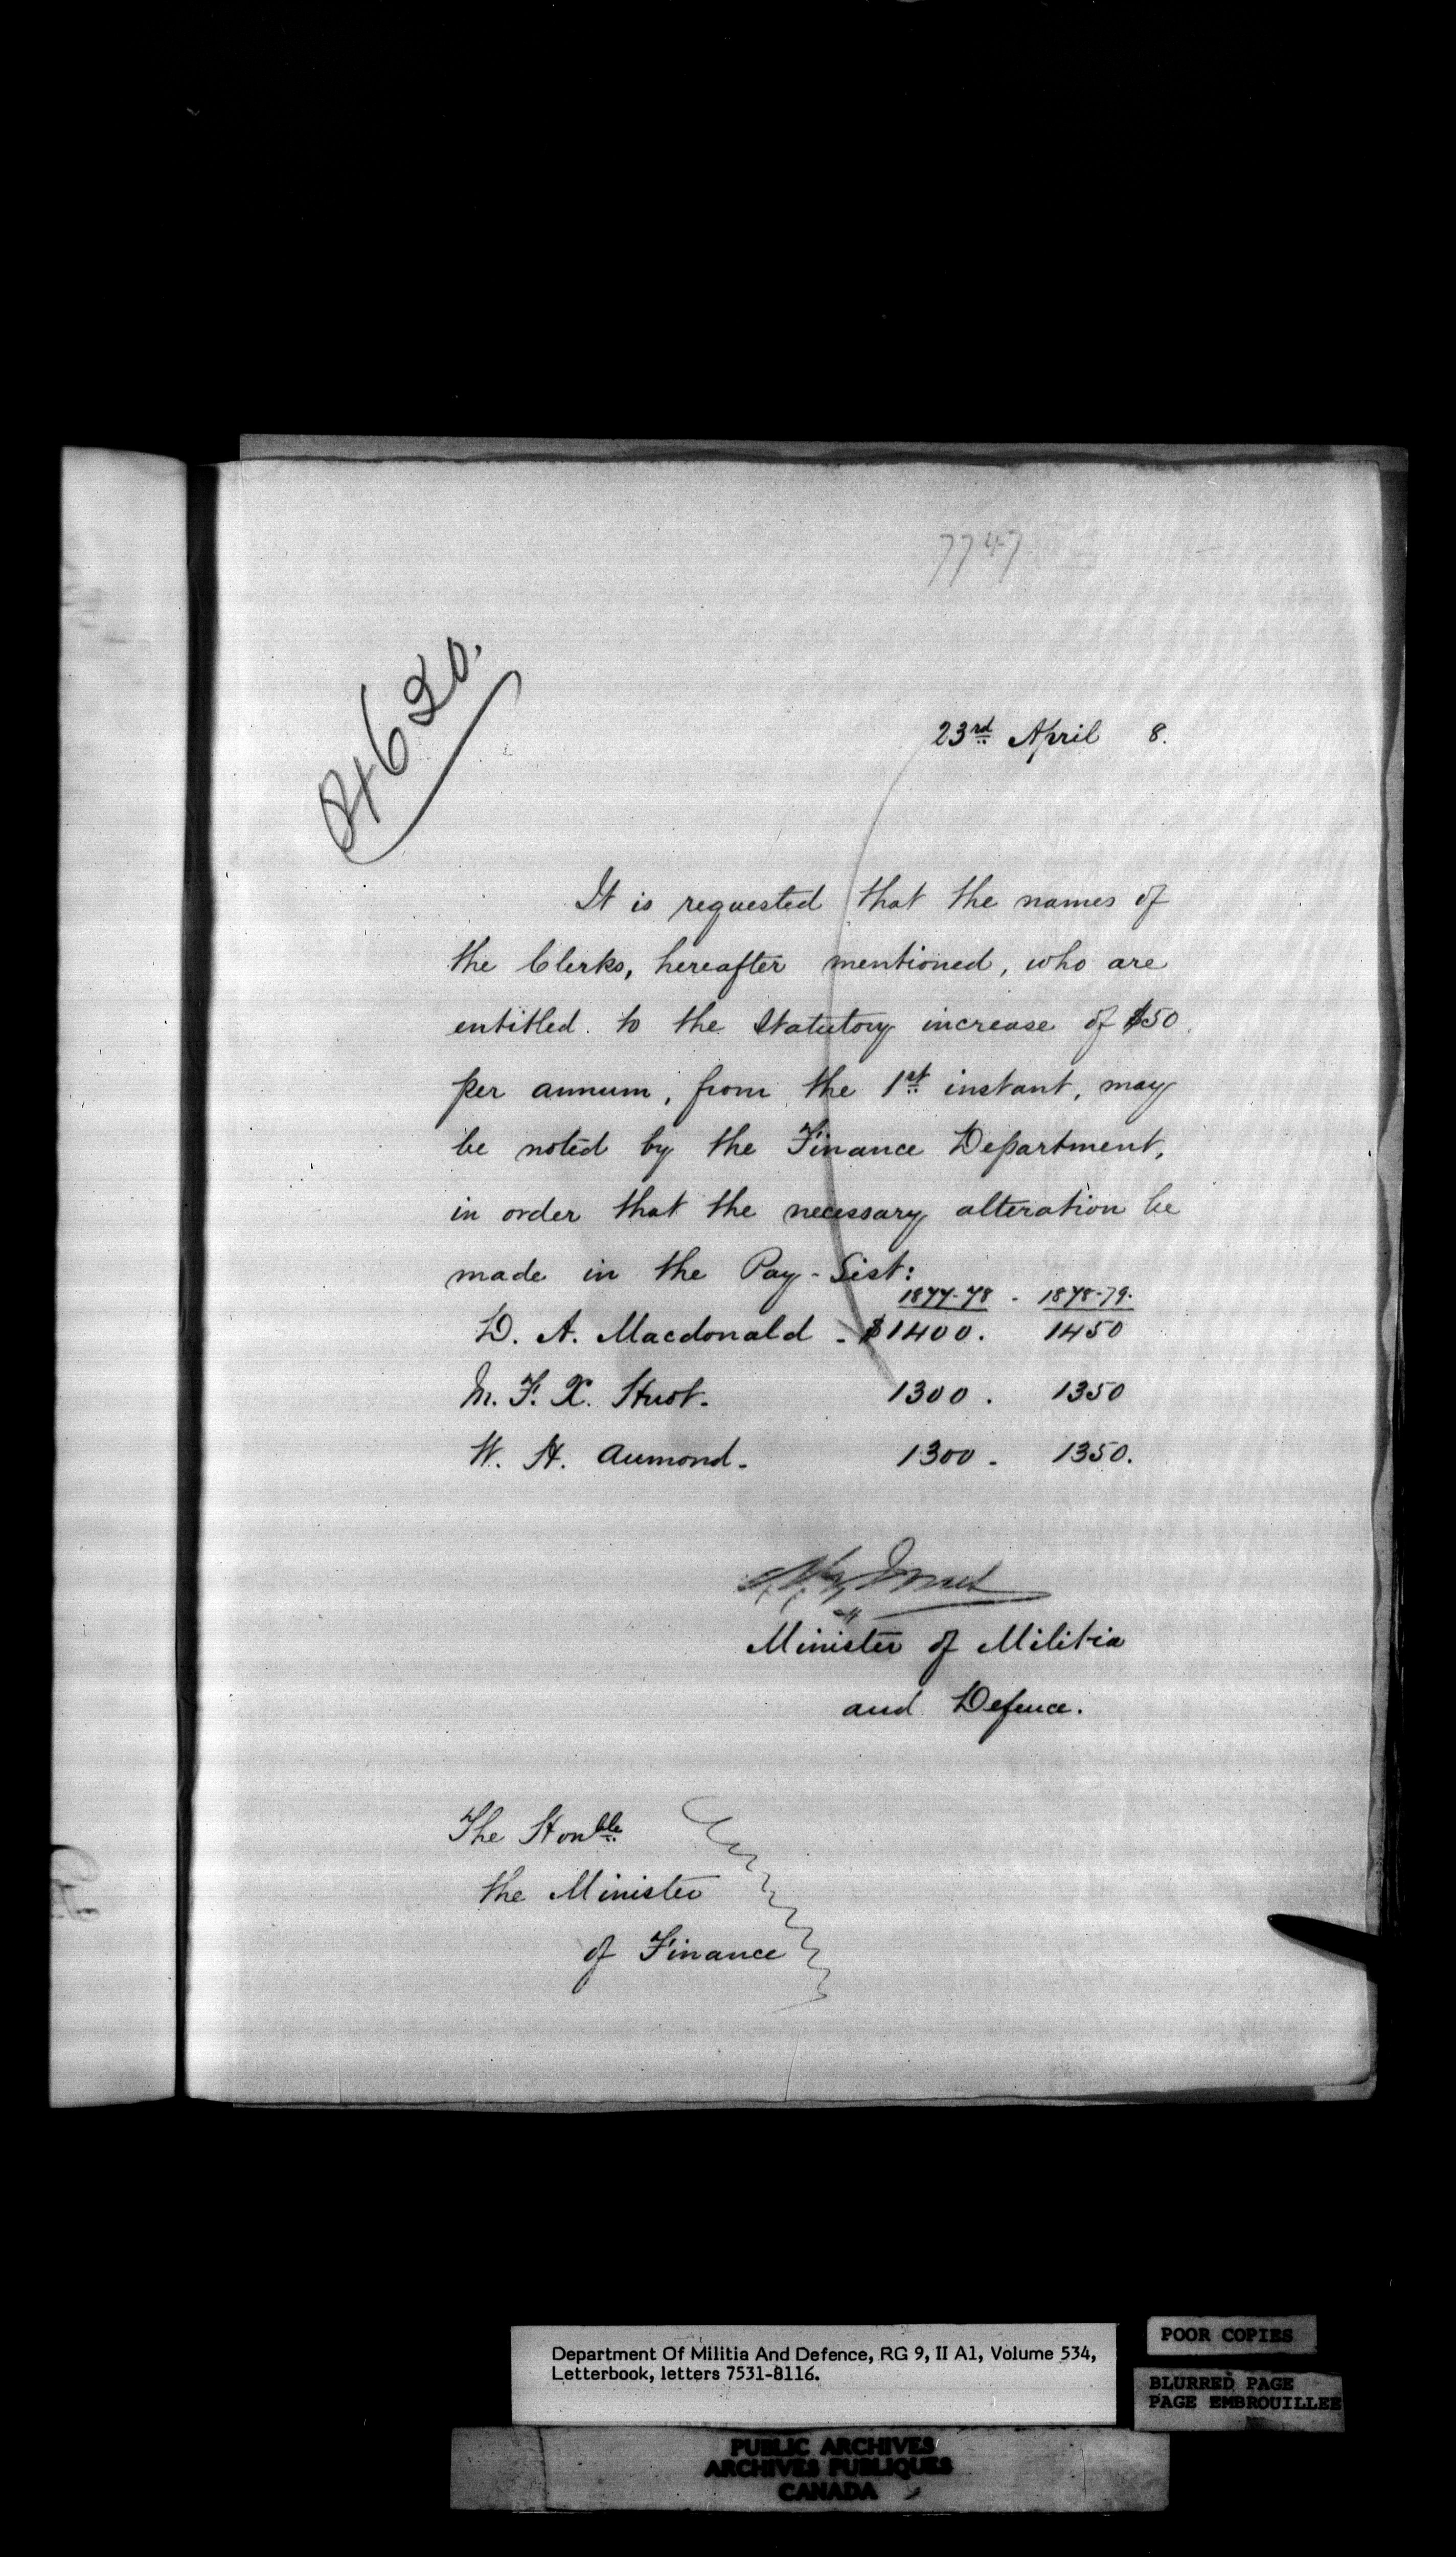 7747
04620.
23rd April 8.
It is requested that the names of
the Clerks, hereafter mentioned, who are
entitled to the Statutory increase of $50
per annum, from the 1st instant, may
be noted by the Finance Department,
in order that the necessary alteration be
made in the Pay-List:
1877-78 - 1878-79.
D. A. Macdonald - $1400. 1450
M. F. X. Huot - 1300. 1350
W. H. Aumond - 1300 - 1350.
Minister of Militia
and Defence.
The Honble
the Minister
of Finance
Department Of Militia And Defence, RG 9, II A1, Volume 534,
Letterbook, letters 7531-8116.
POOR COPIES
BLURRED PAGE
PAGE EMBROUILLEE
PUBLIC ARCHIVES
ARCHIVES PUBLIQUES
CANADA